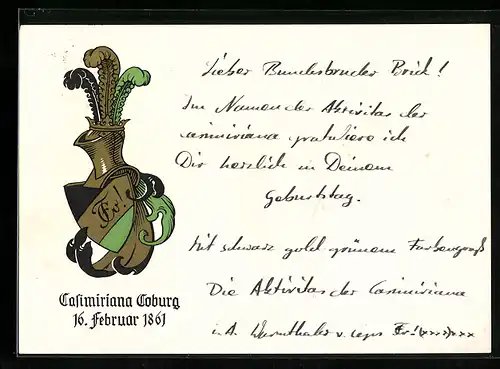 Lieber Bundesbruder Brick!
Im Namen der Aktivitas der
Casimiriana gratuliere ich
Dir herzlich in Deinem
Geburtstag.
Mit schwarz gold grünem Farbengruß
Die Aktivitas der Casimiriana
i. A. v.
Casimiriana Coburg
16. Februar 1861